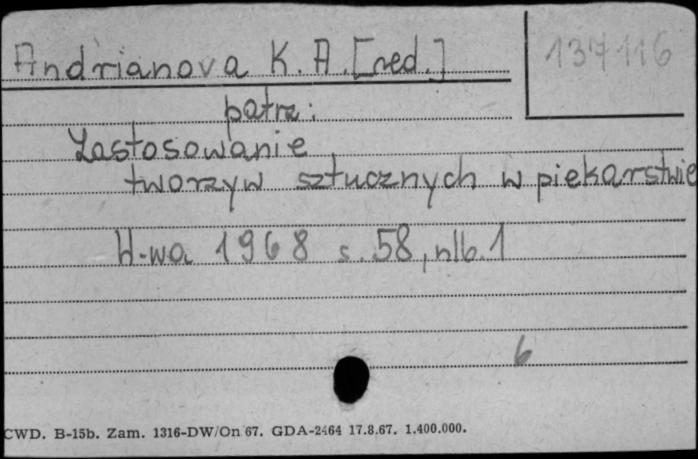 Andrianova K. A. [red.]
137116
patrz:
Zastosowanie
tworzyw sztucznych w piekarstwie
W-wa 1968 s. 58, nlb. 1
6
CWD. B-15b. Zam. 1316-DW/On 67. GDA-2464 17.8.67. 1.400.000.